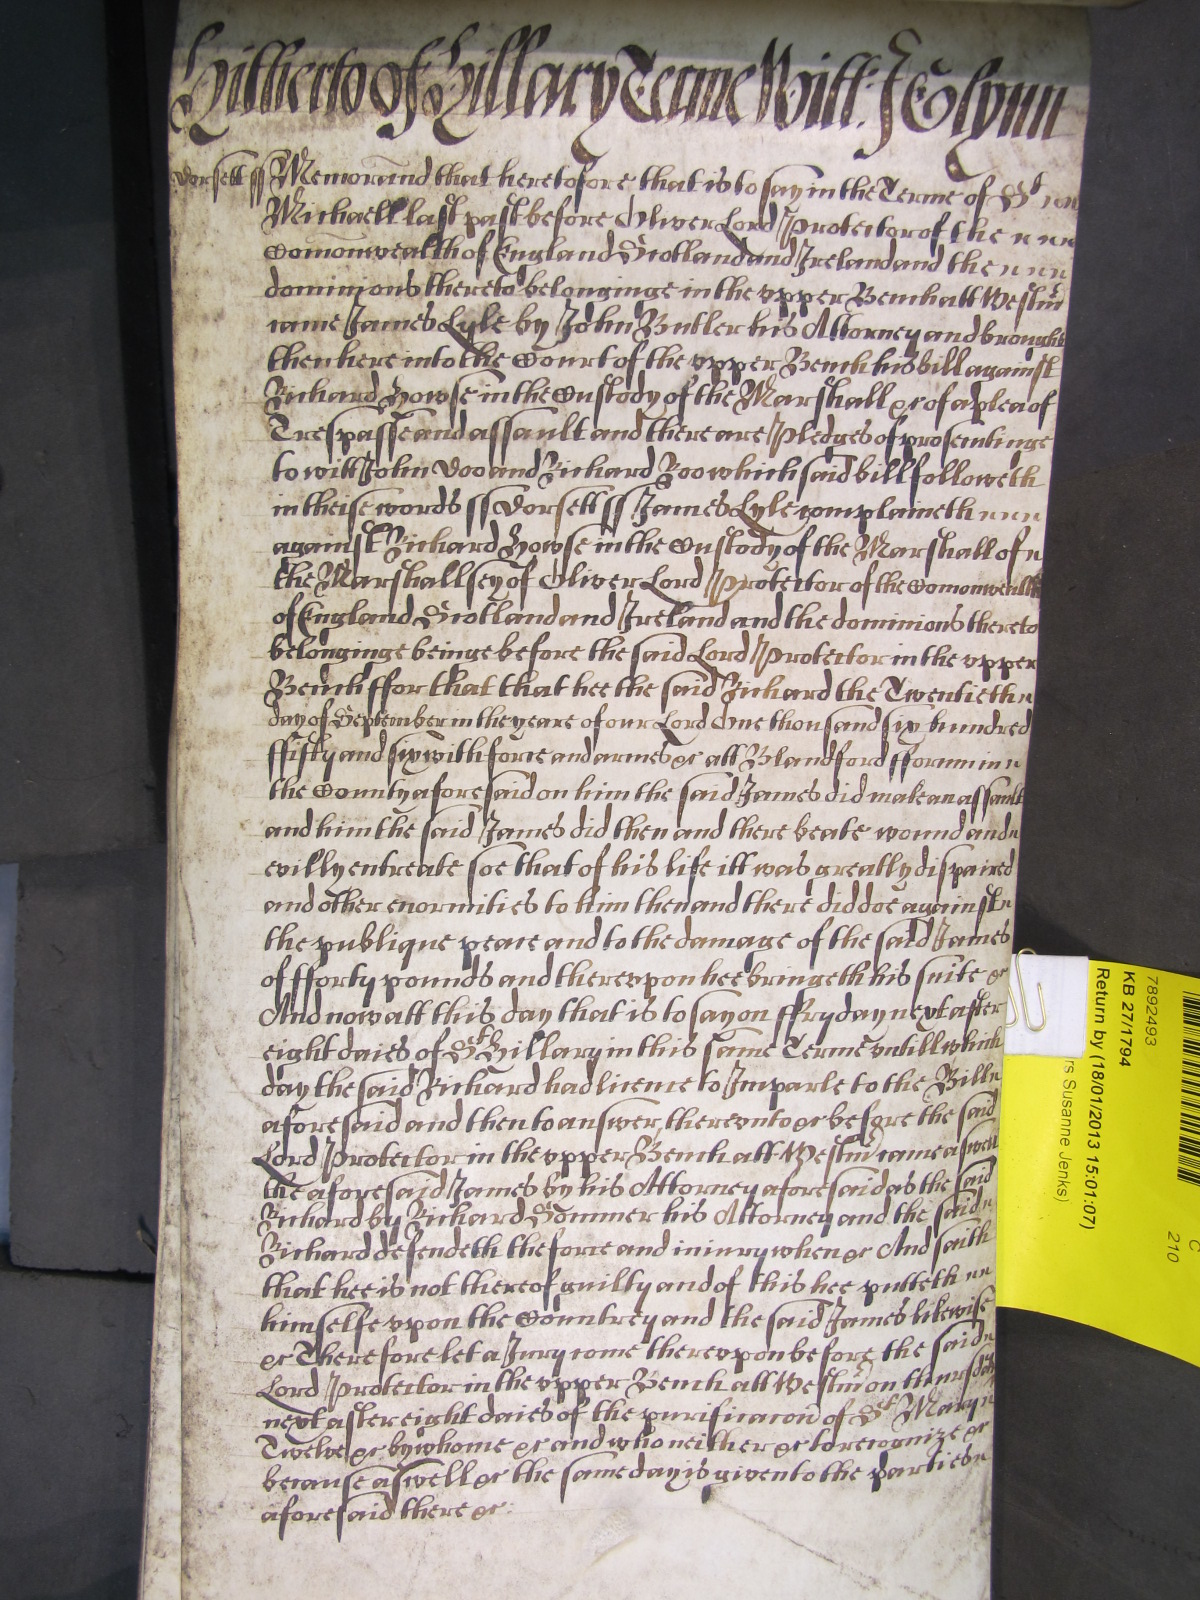 Hitherto of Hillary Terme Witt: J Glynn
Dorsett ss Memorand that heretofore that is to say in the Terme of St
Michaell last past before Oliver Lord Protector of the
Comonwealth of England Scotland and Ireland and the
dominions thereto belonginge in the vpper Bench att Westm
came James Lyle by John Butler his Attorney and brought
then here into the Court of the vpper Bench his bill against
Richard Howse in the Custody of the Marshall &c of a plea of
Trespasse and assault and there are Pledges of prosecutinge
to witt John Doo and Richard Roo which said bill followeth
in theise words ss Dorsett ss James Lyle complaineth
against Richard Howse in the Custody of the Marshall of
the Marshallsey of Oliver Lord Protector of the Comonwealth
of England Scotland and Ireland and the dominions thereto
belonginge beinge before the said Lord Protector in the vpper
Bench ffor that that hee the said Richard the Twentieth
day of September in the yeare of our Lord One thousand six hundred
ffifty and six with force and armes &c att Blandford fforum in
the County aforesaid on him the said James did make an assault
and him the said James did then and there beate wound and
evilly entreate soe that of his life itt was greatly dispaired
and other enormities to him then and there did doe against
the publique peace and to the damage of the said James
of fforty pounds and therevpon hee bringeth his suite &c
And now att this day that is to say on ffryday next after
eight daies of St Hillary in this same Terme vntill which
day the said Richard had licence to Imparle to the Bill
aforesaid and then to answer therevnto &c before the said
Lord Protector in the vpper Bench att Westm came aswell
the aforesaid James by his Attorney aforesaid as the said
Richard by Richard Somner his Attorney and the said
Richard defendeth the force and iniury when &c And saith
that hee is not thereof guilty and of this hee putteth
himselfe vpon the Countrey and the said James likewise
&c Therefore let a Jury come therevpon before the said
Lord Protector in the vpper Bench att Westm on thursday
next after eight daies of the purificacon of St Mary
Twelve &c by whome &c and who neither &c to recognize &c
because aswell &c the same day is given to the parties
aforesaid there &c.
78924993
KB 27/1794
Return by (18/01/2013 15:01:07)
rs Susanne Jenks)
C
210